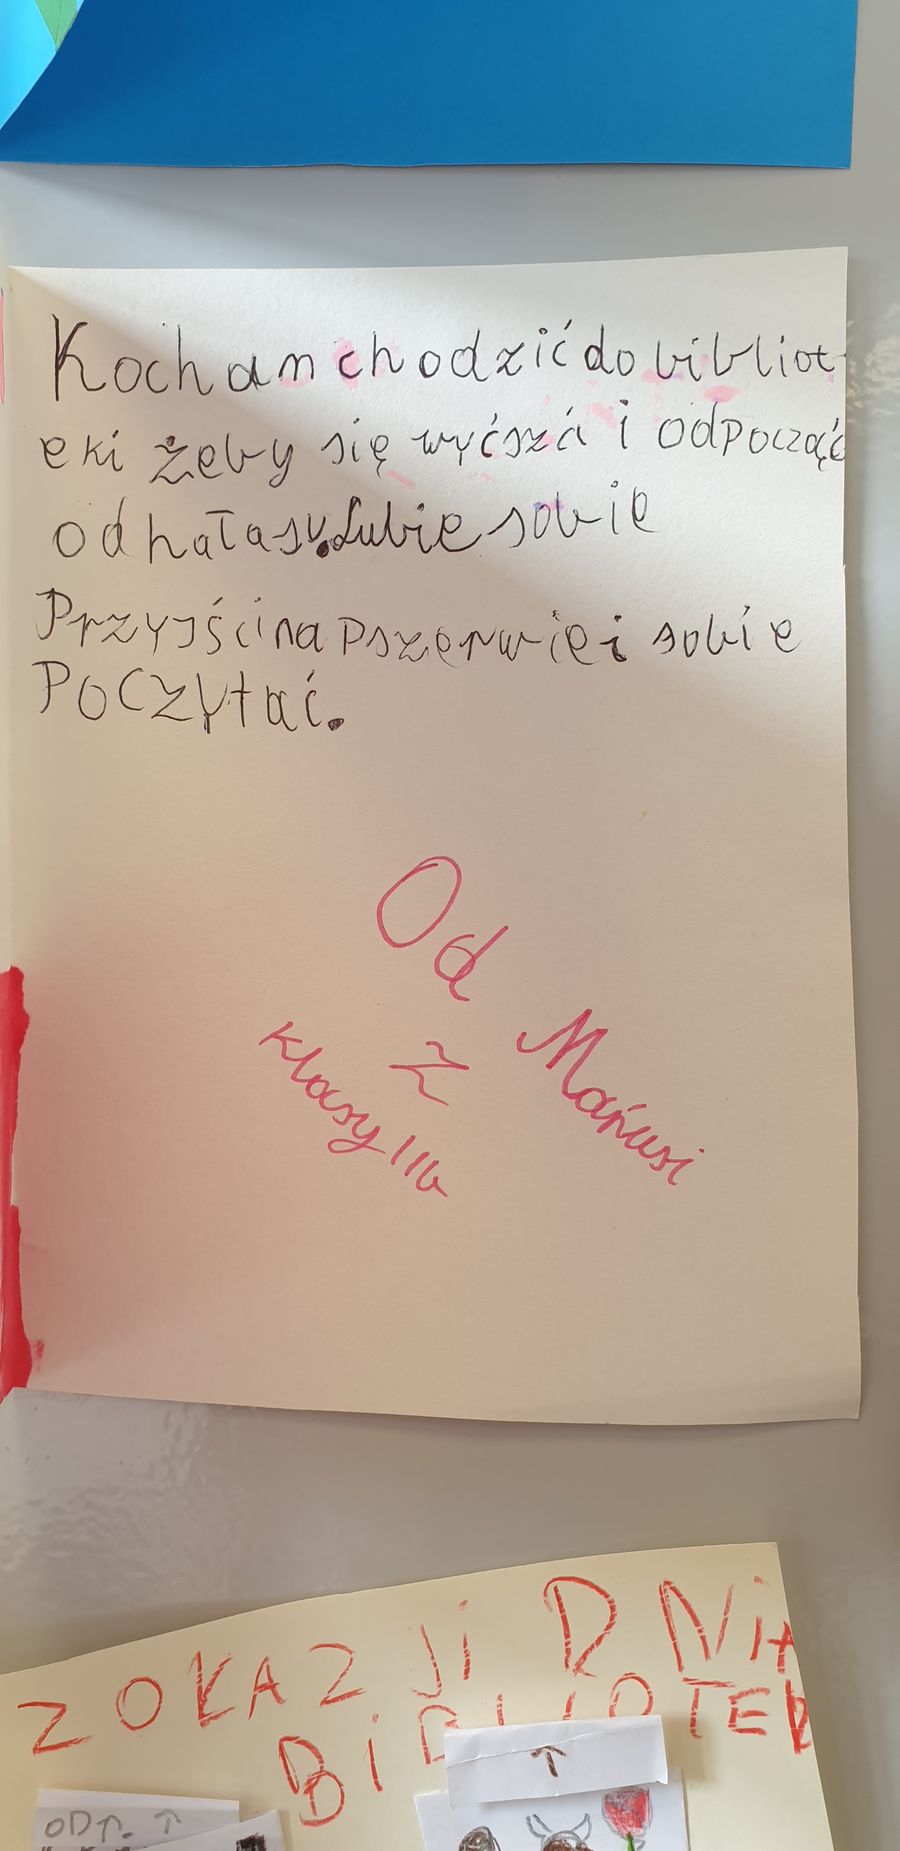 Kocham chodzić do bibliot
eki żeby się wyćszá i odpocząć
od hałasu. Lubię sobie
Przyjści na pszerwię i sobie
POCZYtać.
Od
Mańusi
z
klasy IIb
Z OKAZJI DNiA
BiBLIOTEK
OD